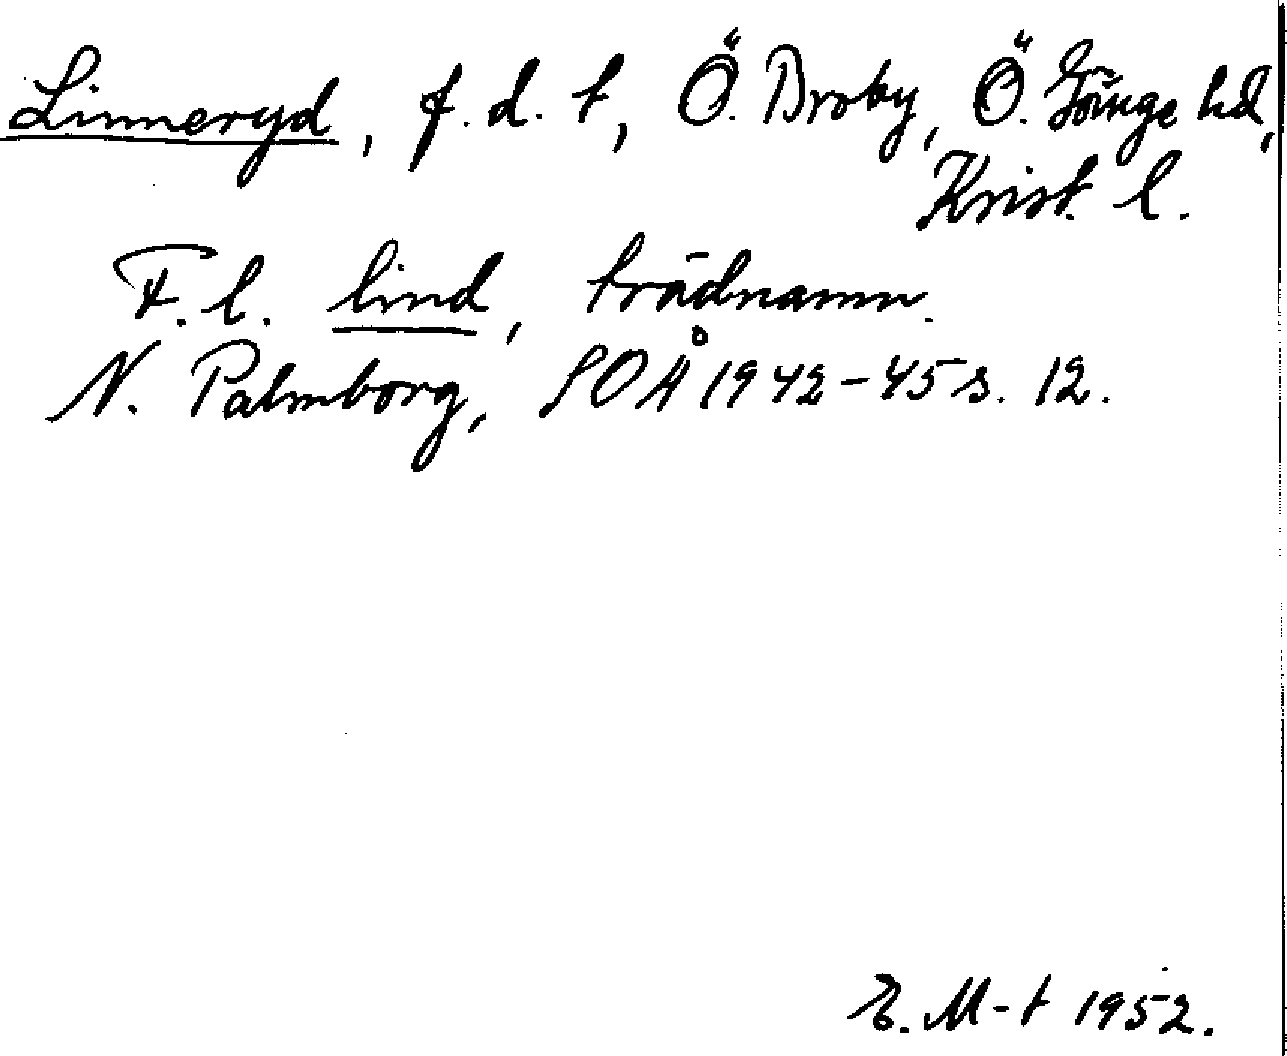 Linneryd, f.d. t, Ö. Broby, Ö. Göinge hd,
Krist. l.
F.l. lind, trädnamn.
N. Palmborg, SOÅ 1942-45 s. 12.
E. M-t 1952.